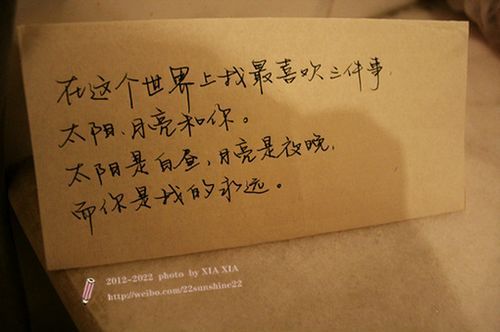 在这个世界上我最喜欢三件事,
太阳、月亮和你。
太阳是白昼,月亮是夜晚,
而你是我的永远。
2012-2022 photo by XIA XIA
http://weibo.com/22sunshine22